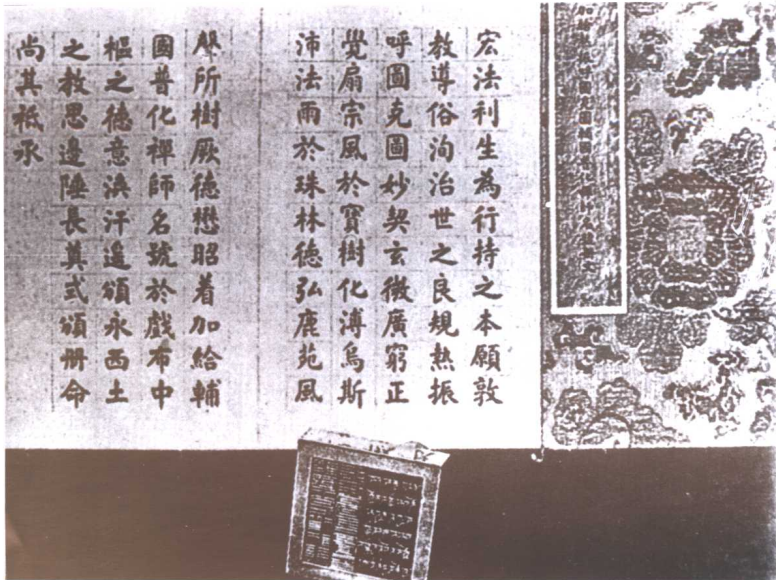 呼圖克圖輔國普化禪師
宏法利生為行持之本願敦
教導俗洵治世之良規熱振
呼圖克圖妙契玄微廣窮正
覺扇宗風於寶樹化溥烏斯
沛法雨於珠林德弘鹿苑風
聲所樹厥德懋昭着加給輔
國普化禪師名號於戲布中
樞之德意渙汗遙頒永西土
之教思邊陲長奠式頒册命
尚其祗承